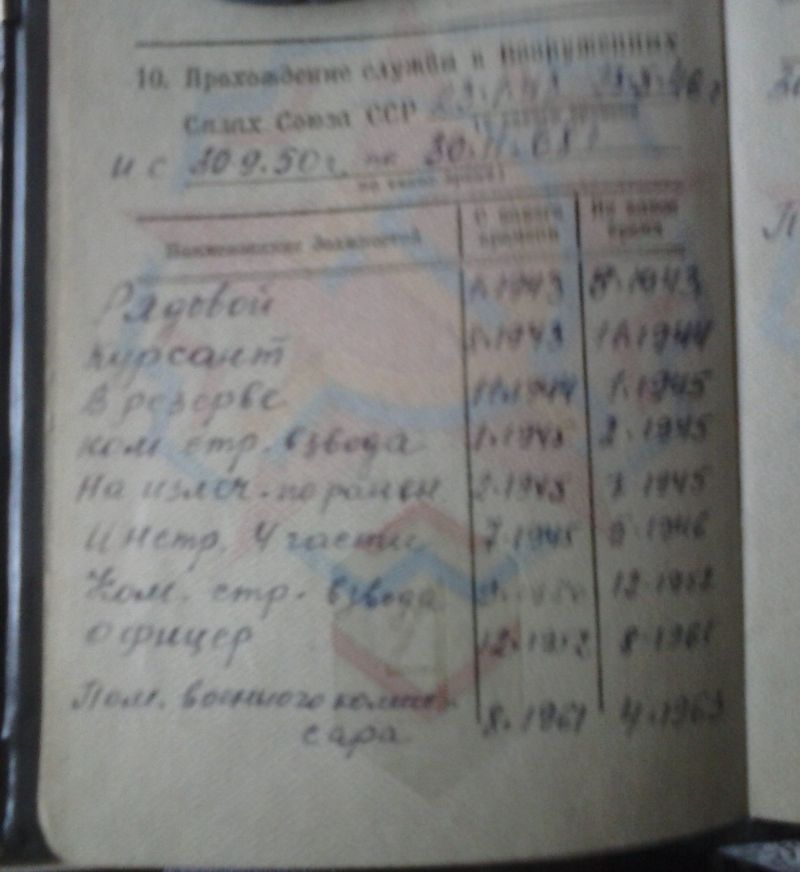 10. Прохождение службы в Вооруженных
Силах Союза ССР
и с 30 9.50 г. по 30.11.
(по какое время)
Наименование должностей С какого времени По какое время
Рядовой 1.1943 8.1943
Курсант 1943 11.1944
В резерве 11.1944 1.1945
ком стр. взвода 1.1945 2.1945
На излеч. по ранен. 2.1945 1945
Инстр. 4 части 7.1945 1946
Ком. стр. взвода 12.1952
офицер 12.1952 8.1961
Пом. военного комис-
сара 8.1961 4.1963